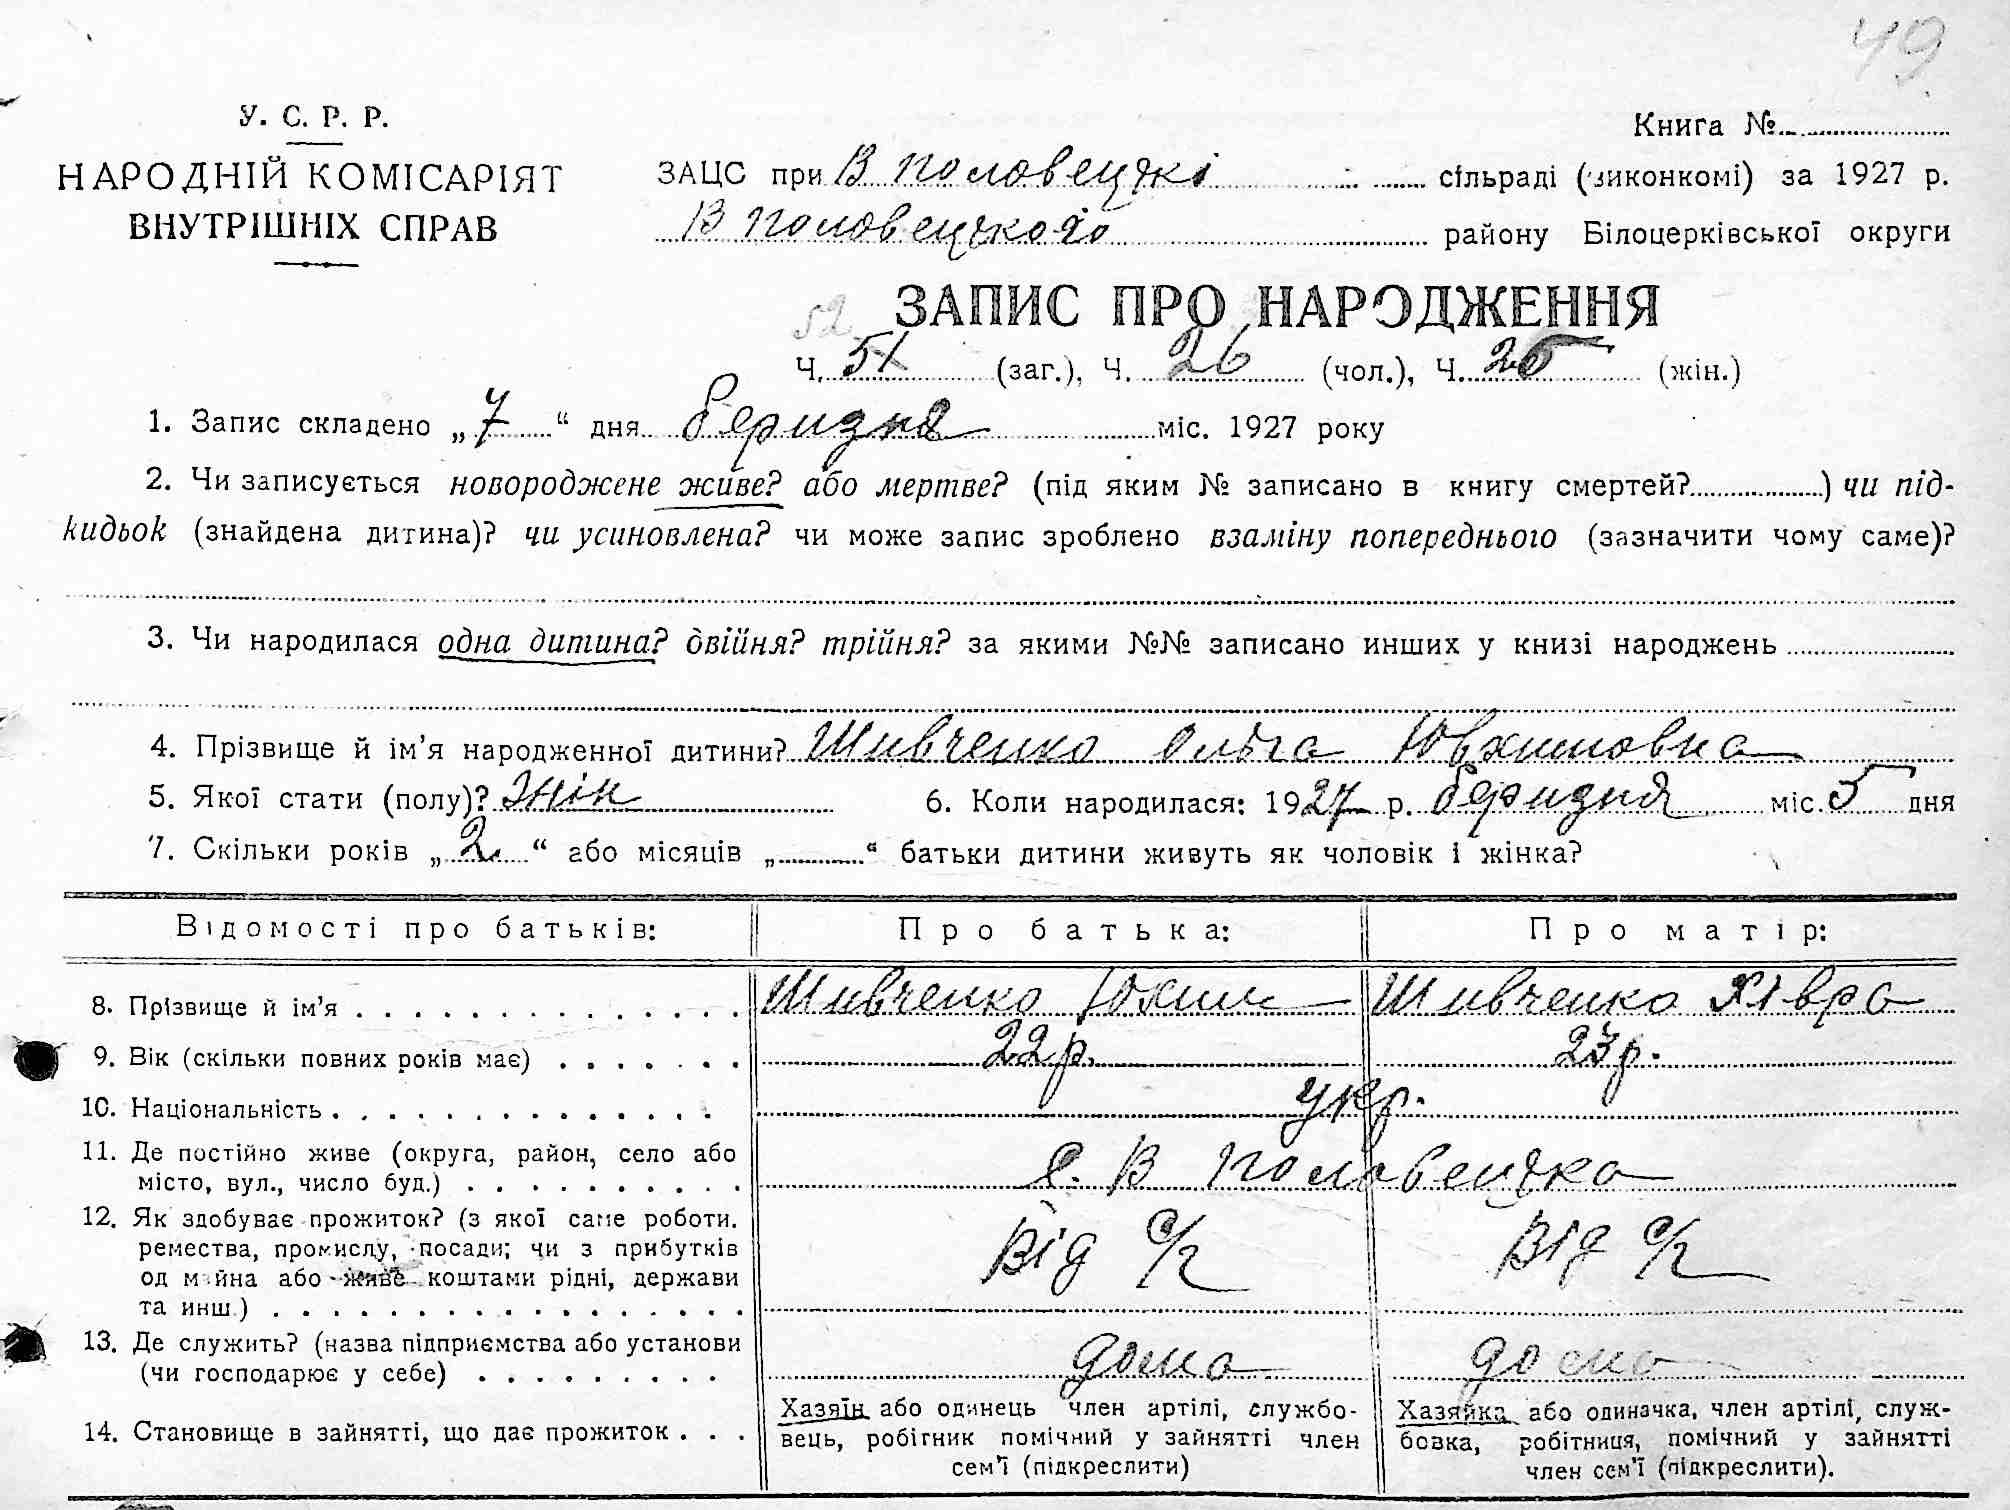 49
У. С. Р. Р.
НАРОДНІЙ КОМІСАРІЯТ
ВНУТРІШНІХ СПРАВ
Книга №
ЗАЦС при В Половецькі сільраді (виконкомі) за 1927 р.
В Половецького району Білоцерківської округи
ЗАПИС ПРО НАРОДЖЕННЯ
52
Ч. 51 (заг.), Ч. 26 (чол.), Ч. 25 (жін.)
1. Запис складено „ 7 “ дня березня міс. 1927 року
2. Чи записується новороджене живе? або мертве? (під яким № записано в книгу смертей?) чи під-
кидьок (знайдена дитина)? чи усиновлена? чи може запис зроблено взаміну попереднього (зазначити чому саме)?
3. Чи народилася одна дитина? двійня? трійня? за якими №№ записано инших у книзі народжень
4. Прізвище й ім'я народженної дитини? Шивченко Ольга Ювхимовна
5. Якої стати (полу)? Жін 6. Коли народилася: 1927 р. березня міс. 5 дня
7. Скільки років „ 2 “ або місяців „ “ батьки дитини живуть як чоловік і жінка?
Відомості про батьків: Про батька: Про матір:
8. Прізвище й ім'я Шивченко Юхим Шивченко Хівра
9. Вік (скільки повних років має) 22 р. 23 р.
10. Національність укр.
11. Де постійно живе (округа, район, село або
місто, вул., число буд.) с. В Половецька
12. Як здобуває прожиток? (з якої саме роботи.
ремества, промислу, посади; чи з прибутків
од майна або живе коштами рідні, держави
та инш.) Від с/г Від с/г
13. Де служить? (назва підприємства або установи
(чи господарює у себе) дома дома
14. Становище в зайнятті, що дає прожиток
Хазяїн або одинець член артілі, службо-
вець, робітник помічний у зайнятті член
сем'ї (підкреслити)
Хазяйка або одиначка, член артілі, служ-
бовка, робітниця, помічний у зайнятті
член сем'ї (підкреслити).